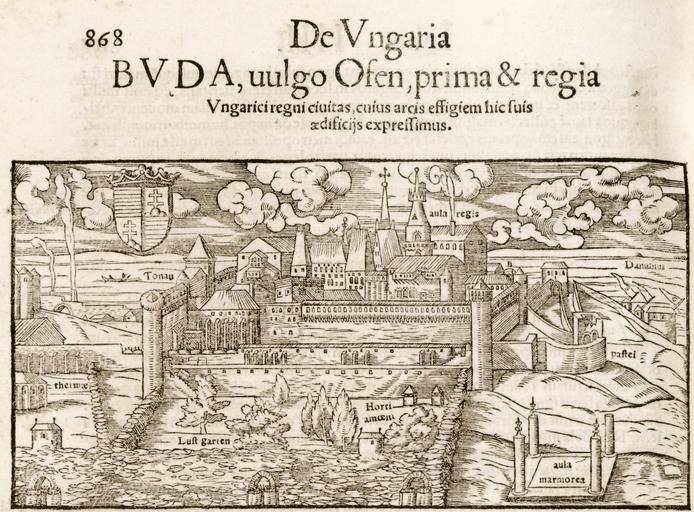 868
De Vngaria
BVDA, uulgo Ofen, prima & regia
Vngarici regni ciuitas, cuius arcis effigiem hic suis
ædificijs expressimus.
aula regia
Tonau
Danubiu
pastei
thermæ
Horti
amœni
Lust garten
aula
marmorea